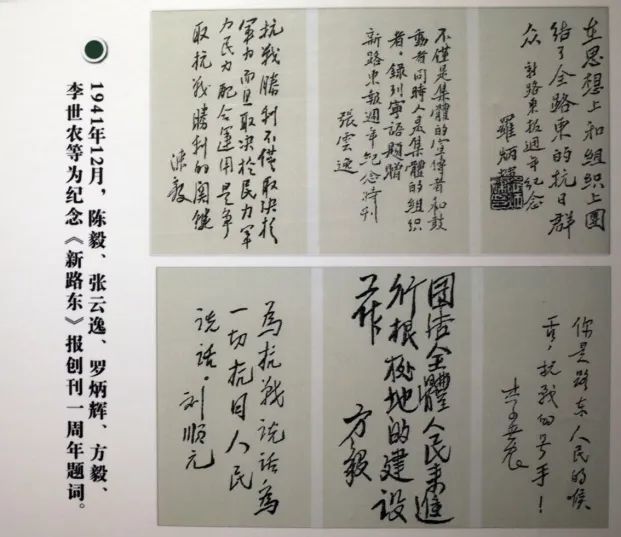 1941年12月，陈毅、张云逸、罗炳辉、方毅、
李世农等为纪念《新路东》报创刊一周年题词。
在思想上和組織上團
結了全路東的抗日群
众 新路東报週年紀念
羅炳輝
不僅是集體的宣傳者和鼓
動者同時又是集體的組織
者。錄列寧語題贈
新路東報週年紀念特刊
張雲逸
抗戰勝利不僅取決於
軍力而且取決於民力軍
力民力配合運用是爭
取抗戰勝利的關鍵
陳毅
你是路东人民的喉
舌，抗战的号手！
李世農
团结全體人民来進
行根據地的建設
工作
方毅
為抗戰说话為
一切抗日人民
说话。
刘順元